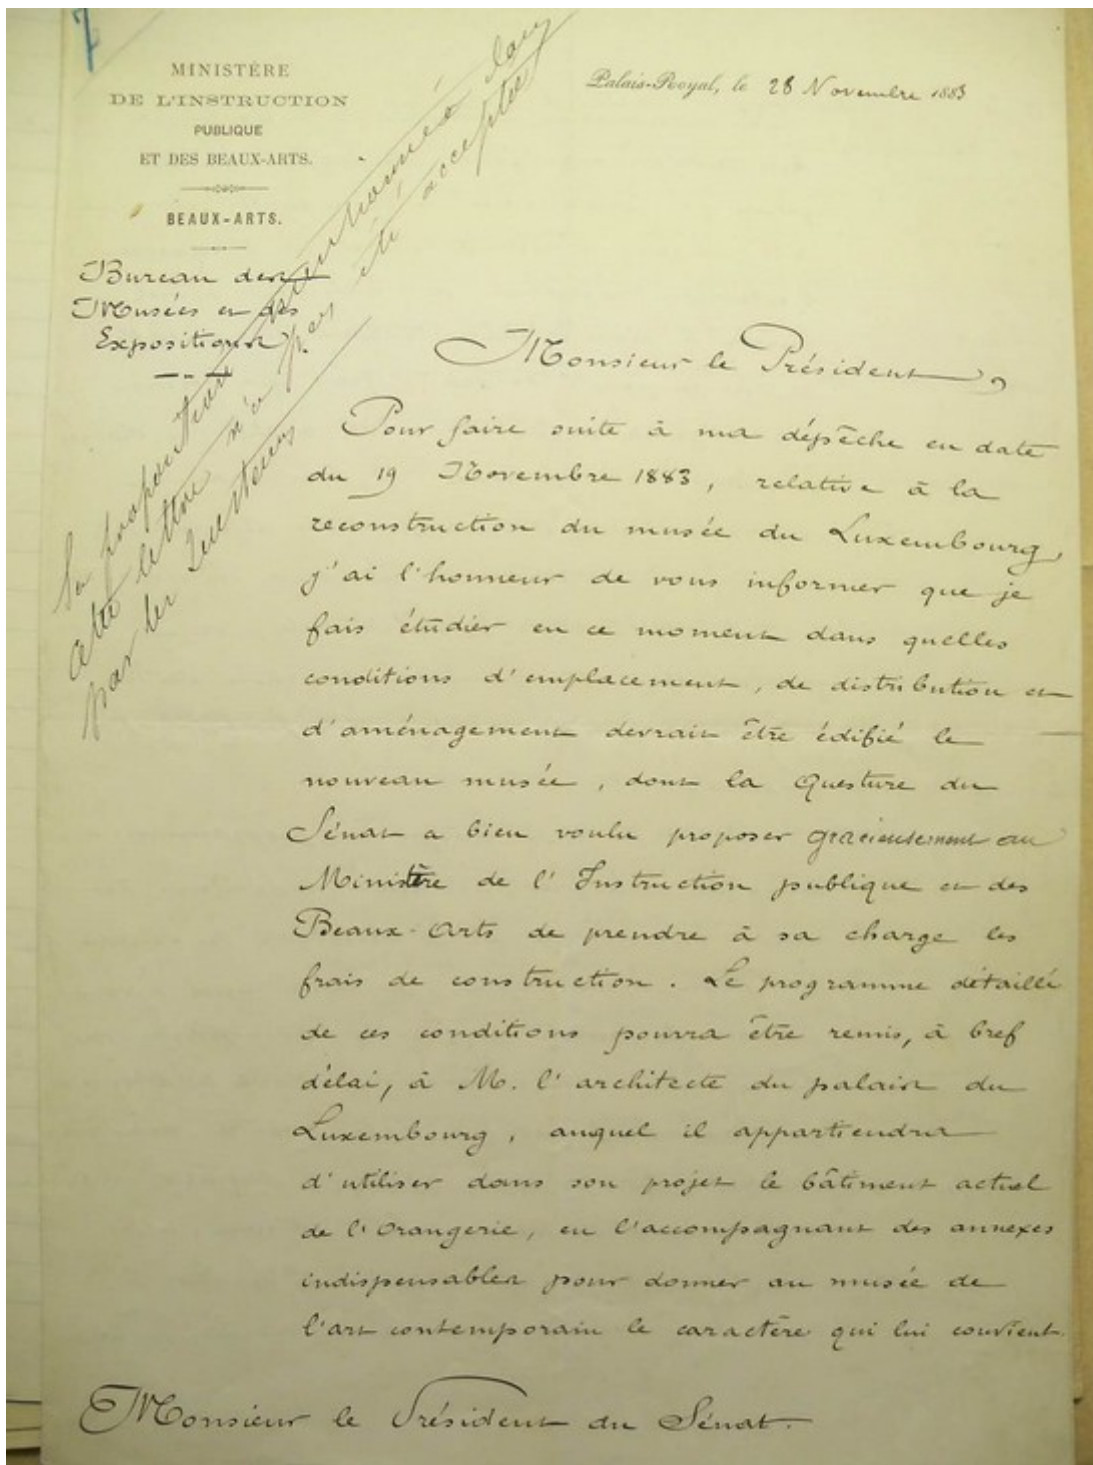 7
MINISTÈRE
DE L'INSTRUCTION
PUBLIQUE
ET DES BEAUX-ARTS.
BEAUX-ARTS.
Bureau des
Musées et des
Expositions
Palais-Royal, le 28 Novembre 1883
La proposition mentionnée dans
cette lettre n'a pas été acceptée
par les Questeurs
Monsieur le Président,
Pour faire suite à ma dépêche en date
du 19 Novembre 1883, relative à la
reconstruction du musée du Luxembourg,
j'ai l'honneur de vous informer que je
fais étudier en ce moment dans quelles
conditions d'emplacement, de distribution et
d'aménagement devrait être édifié le
nouveau musée, dont la Questure du
Sénat a bien voulu proposer gracieusement au
Ministère de l'Instruction publique et des
Beaux-Arts de prendre à sa charge les
frais de construction. Le programme détaillé
de ces conditions pourra être remis, à bref
délai, à M. l'architecte du palais du
Luxembourg, auquel il appartiendra
d'utiliser dans son projet le bâtiment actuel
de l'Orangerie, en l'accompagnant des annexes
indispensables pour donner au musée de
l'art contemporain le caractère qui lui convient.
Monsieur le Président du Sénat.